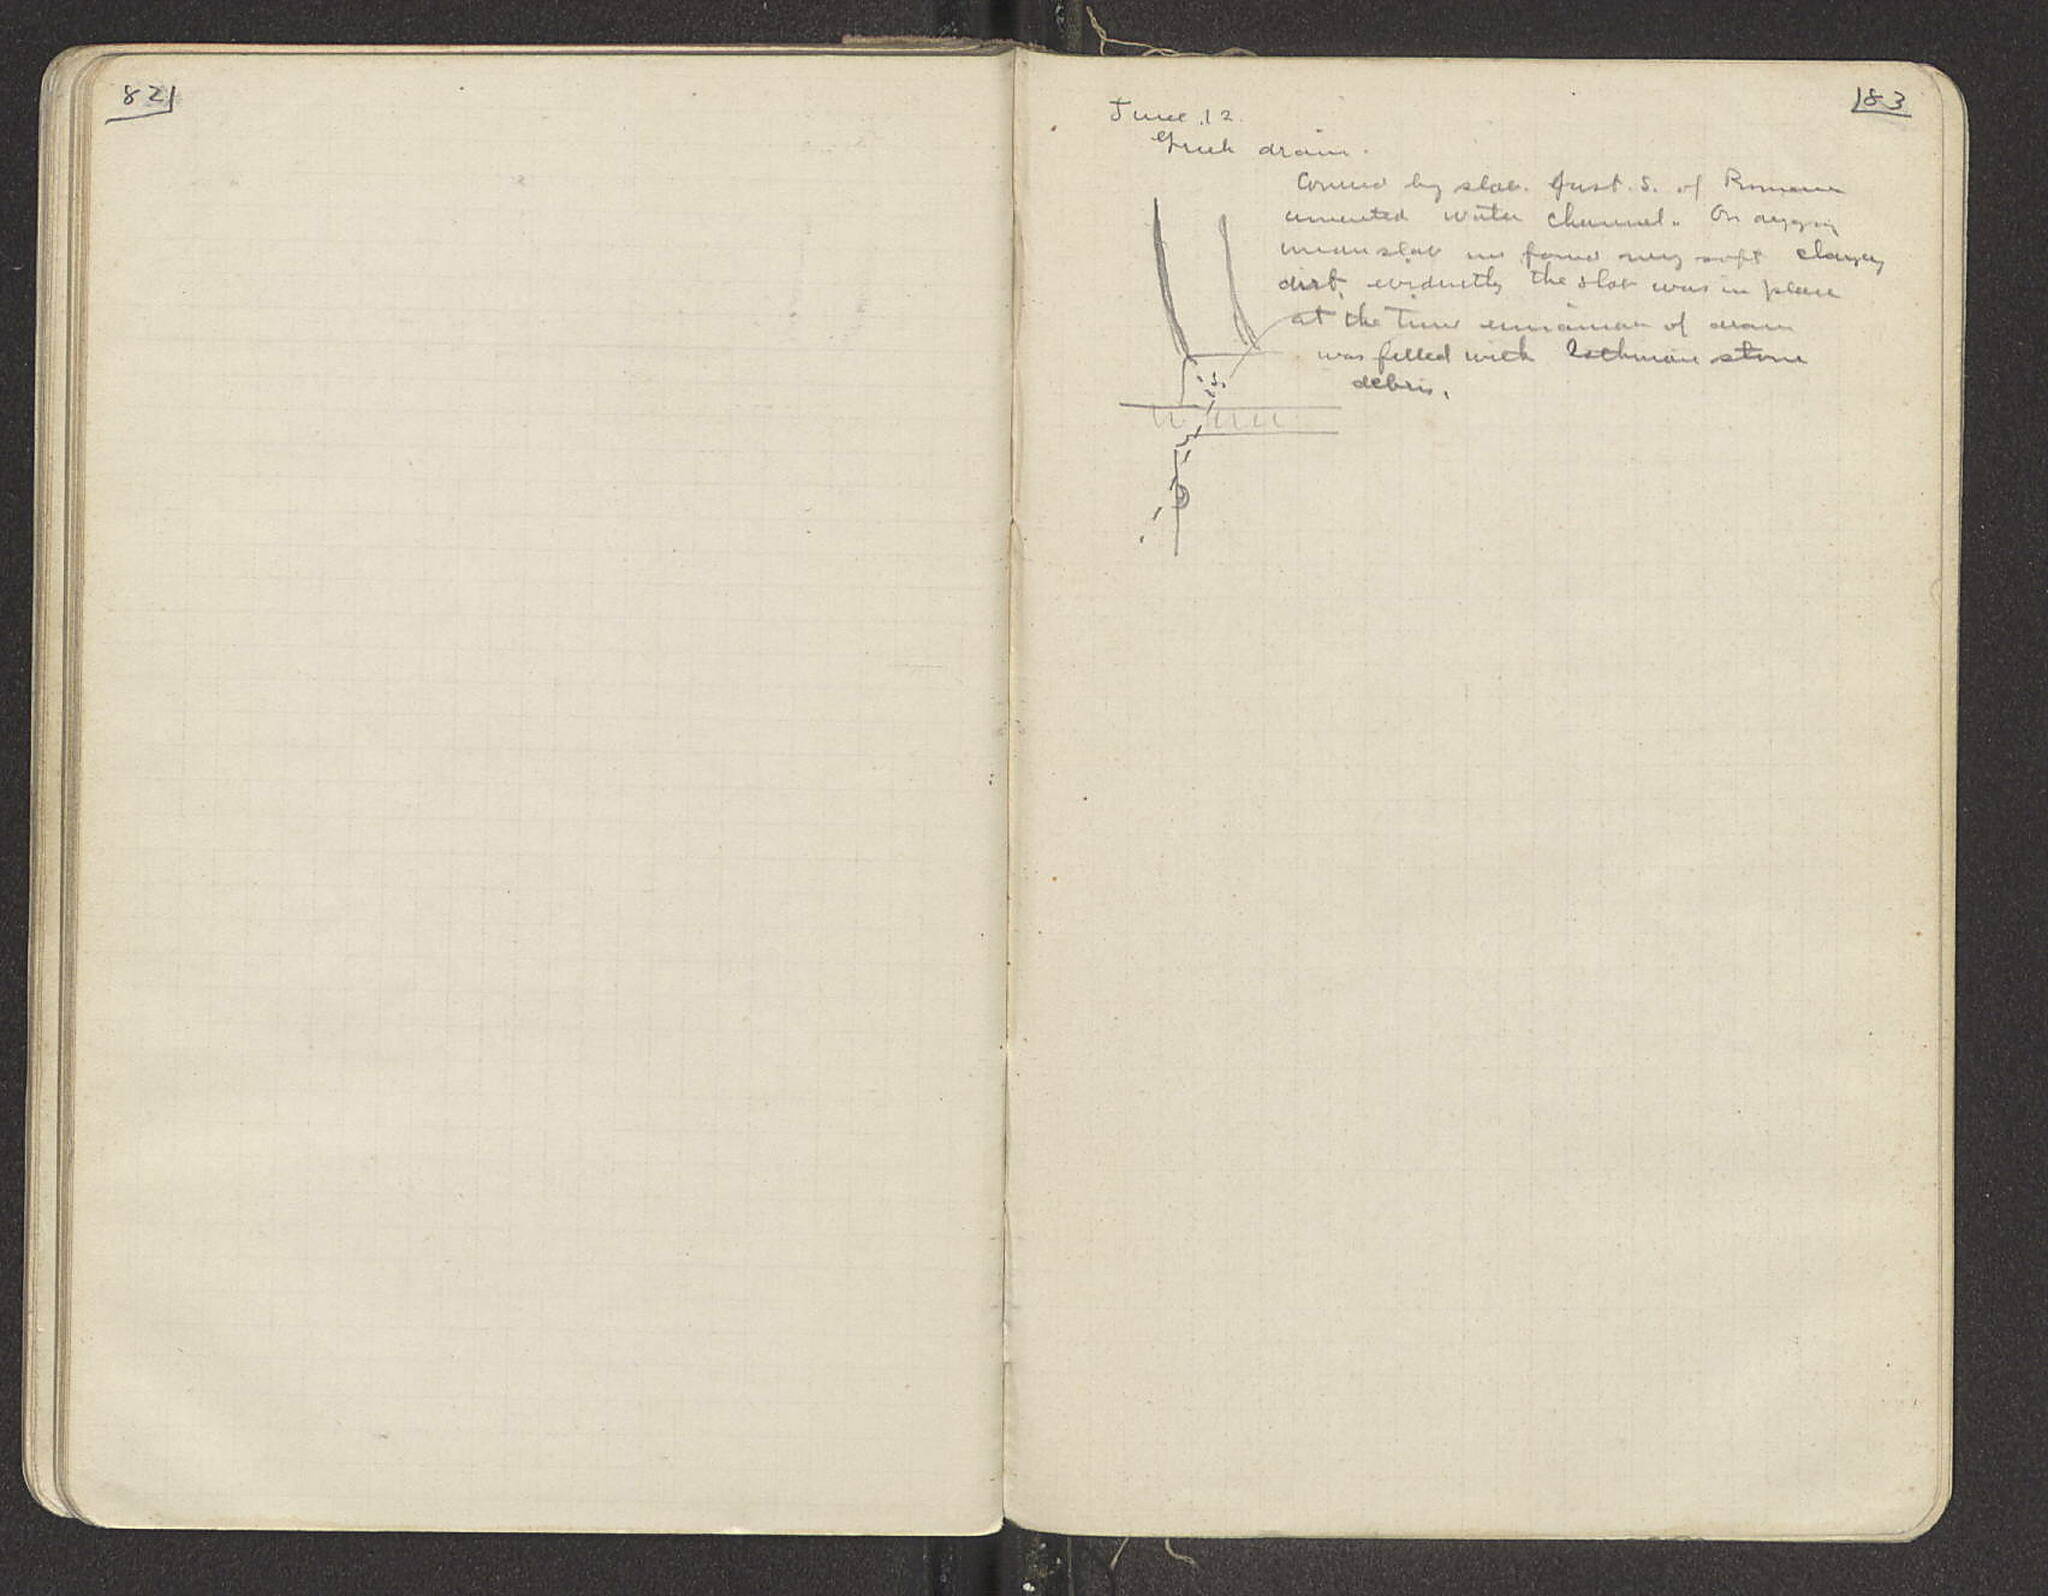 82
83
June 12.
Greek drain.
Covered by slab. Just. S. of Roman
cemented water channel. On digging
slab we found very soft clayey
dirt, evidently the slab was in place
at the time of drain
was filled with Isthmian stone
debris.